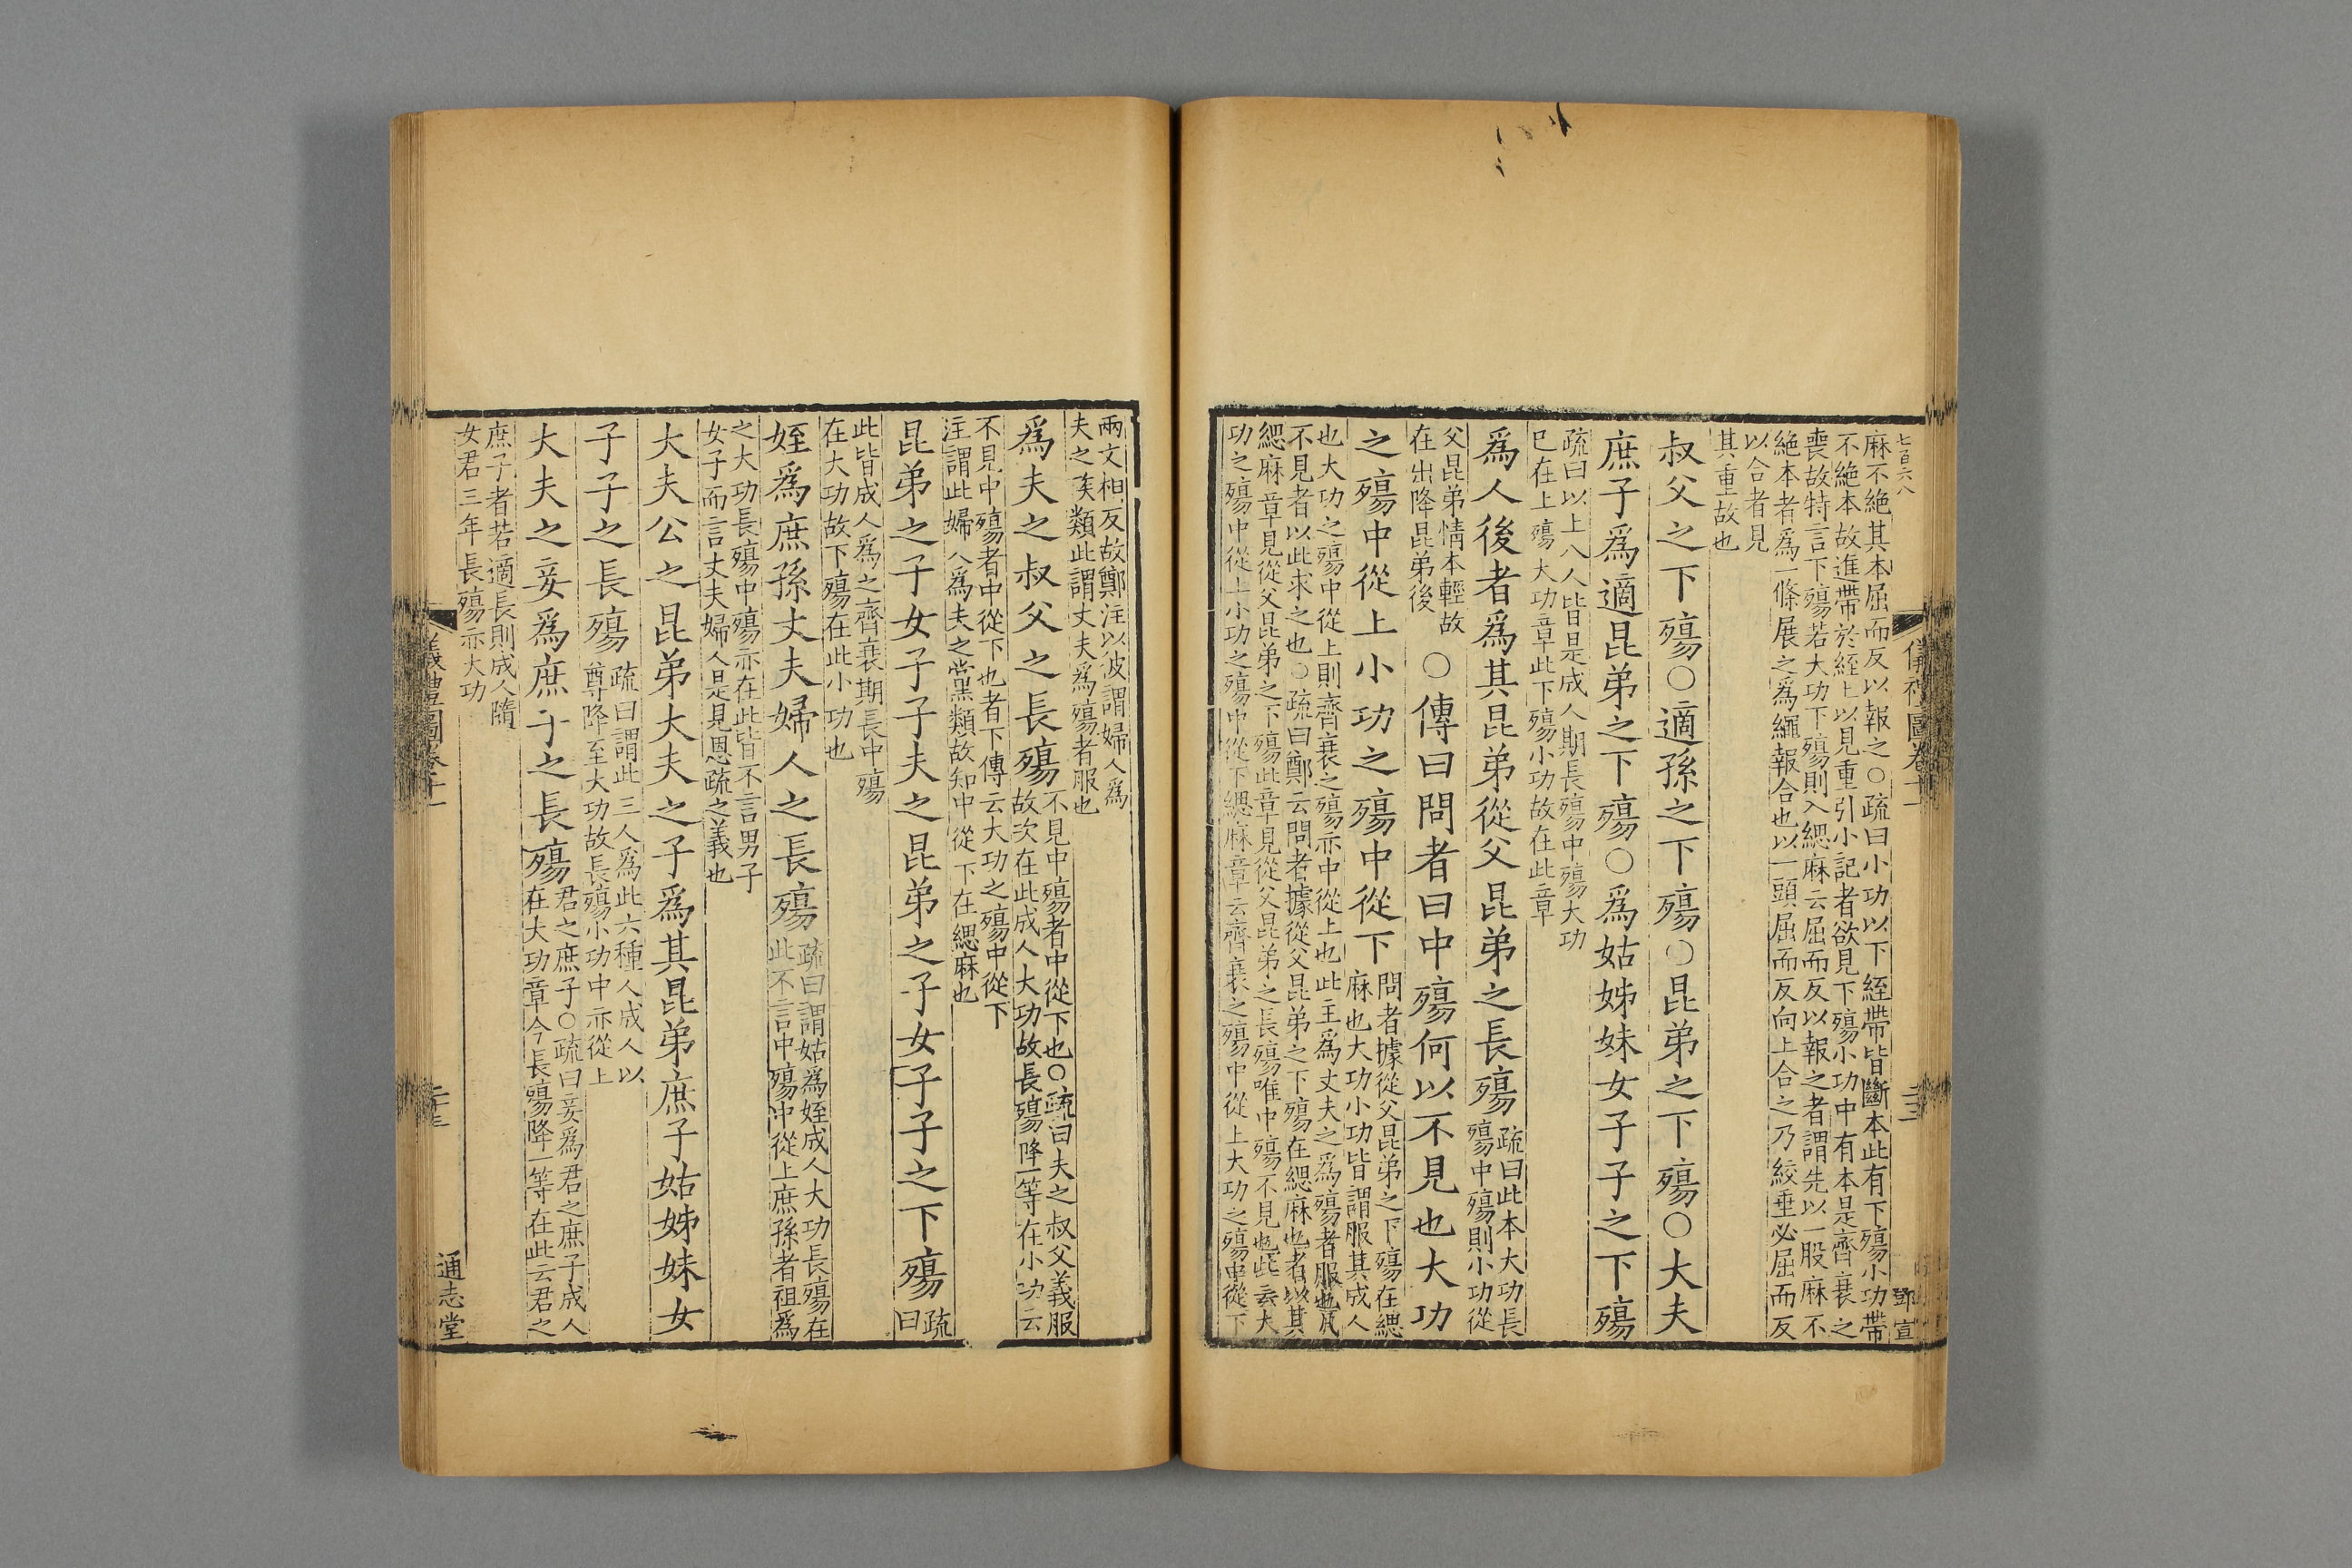 七百六八
儀禮圖卷十一
二十二
鄧宣
麻不絕其本屈而反以報之○疏曰小功以下絰帶皆斷本此有下殤小功帶
不絕本故進帶於絰上以見重引小記者欲見下殤小功中有本是齊衰之
喪故特言下殤若大功下殤則入緦麻云屈而反以報之者謂先以一股麻不
絕本者爲一條展之爲繩報合也以一頭屈而反向上合之乃絞垂必屈而反
以合者見
其重故也
叔父之下殤○適孫之下殤○昆弟之下殤○大夫
庶子爲適昆弟之下殤○爲姑姊妹女子子之下殤
疏曰以上八人皆是成人期長殤中殤大功
已在上殤大功章此下殤小功故在此章
爲人後者爲其昆弟從父昆弟之長殤
疏曰此本大功長
殤中殤則小功從
父昆弟情本輕故
在出降昆弟後
○傳曰問者曰中殤何以不見也大功
之殤中從上小功之殤中從下
問者據從父昆弟之下殤在緦
麻也大功小功皆謂服其成人
也大功之殤中從上則齊衰之殤亦中從上也此主爲丈夫之爲殤者服也凡
不見者以此求之也○疏曰鄭云問者據從父昆弟之下殤在緦麻也者以其
緦麻章見從父昆弟之下殤此章見從父昆弟之長殤唯中殤不見也此云大
功之殤中從上小功之殤中從下緦麻章云齊衰之殤中從上大功之殤中從下
兩文相反故鄭注以彼謂婦人爲
夫之族類此謂丈夫爲殤者服也
爲夫之叔父之長殤
不見中殤者中從下也○疏曰夫之叔父義服
故次在此成人大功故長殤降一等在小功云
不見中殤者中從下也者下傳云大功之殤中從下
注謂此婦人爲夫之黨類故知中從下在緦麻也
昆弟之子女子子夫之昆弟之子女子子之下殤
疏
曰
此皆成人爲之齊衰期長中殤
在大功故下殤在此小功也
姪爲庶孫丈夫婦人之長殤
疏曰謂姑爲姪成人大功長殤在
此不言中殤中從上庶孫者祖爲
之大功長殤中殤亦在此皆不言男子
女子而言丈夫婦人是見恩疏之義也
大夫公之昆弟大夫之子爲其昆弟庶子姑姊妹女
子子之長殤
疏曰謂此三人爲此六種人成人以
尊降至大功故長殤小功中亦從上
大夫之妾爲庶子之長殤
君之庶子○疏曰妾爲君之庶子成人
在大功章今長殤降一等在此云君之
庶子者若適長則成人隨
女君三年長殤亦大功
儀禮圖卷十一
二十三
通志堂